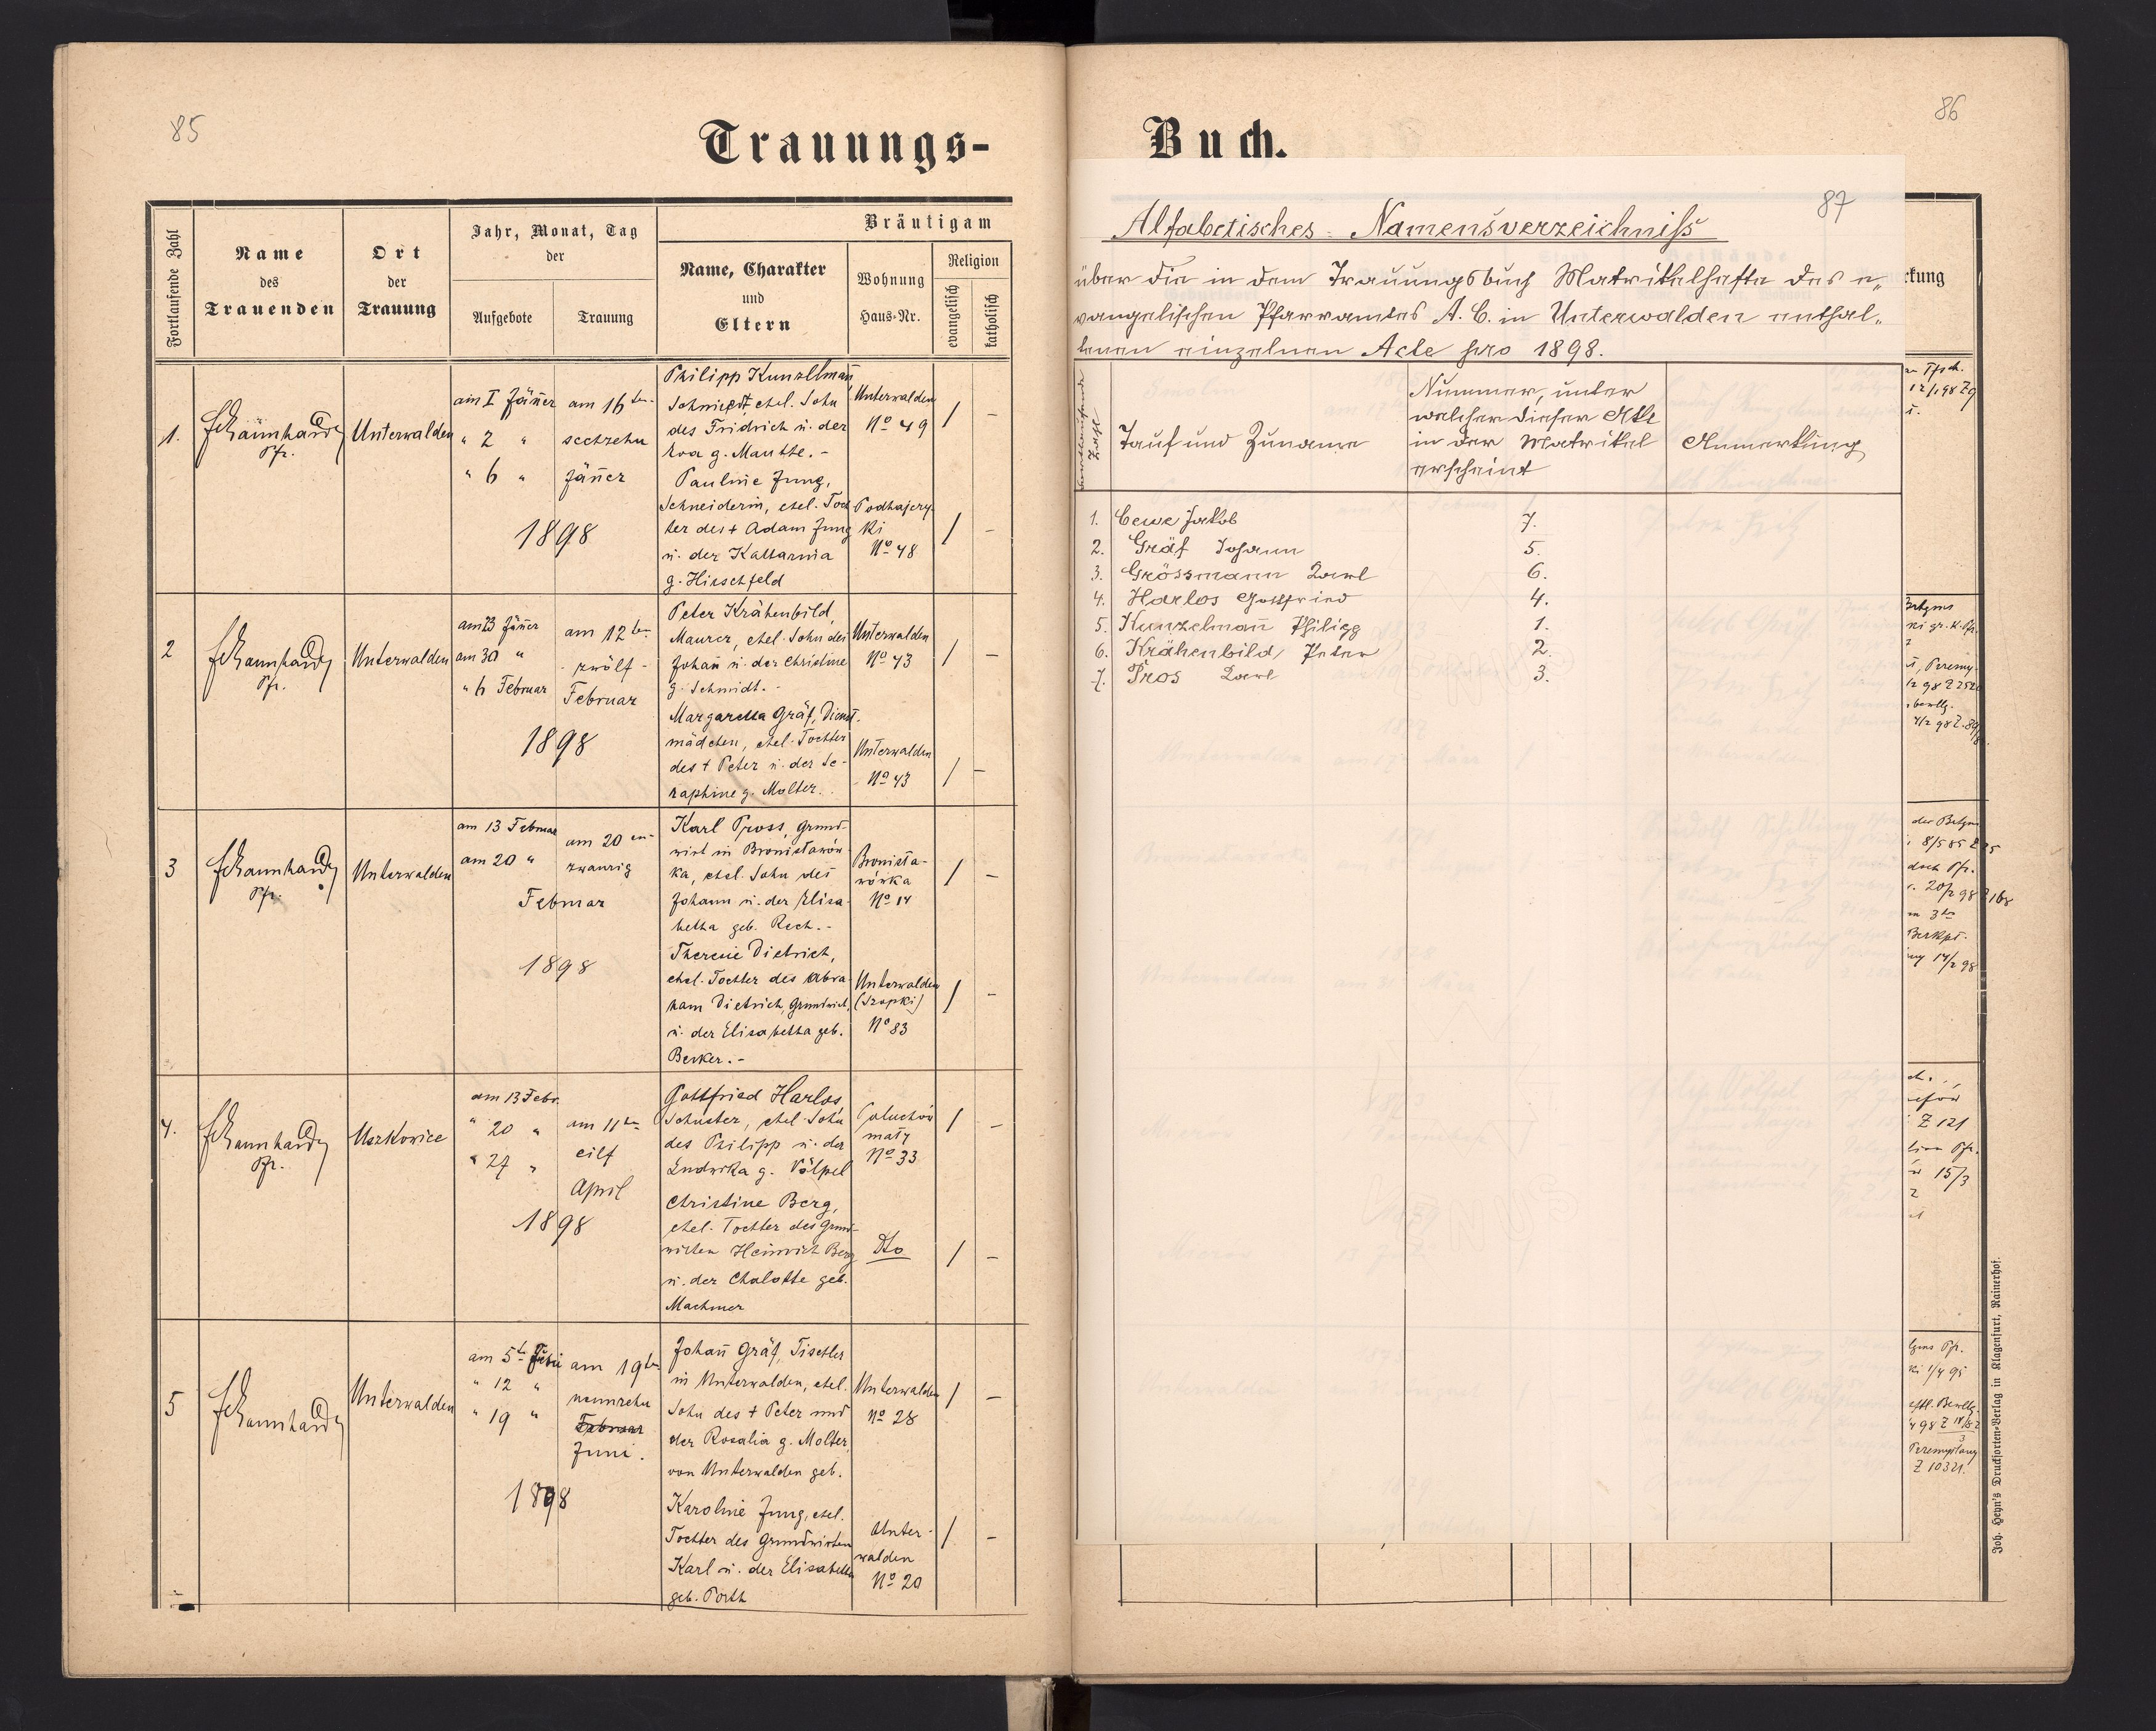 85
Trauungs-
Fortlaufende Zahl
Name
des
Trauenden
Ort
der
Trauung
Jahr, Monat, Tag
der
Aufgebote
Trauung
Bräutigam
Name, Charakter
und
Eltern
Wohnung
Haus-Nr.
Religion
evangelisch
katholisch
1.
Pfr.
Unterwalden
am 1 Jäñer
" 2 "
" 6 "
am 16ten
sechzehn
Jäñer
1898
Philipp Kunzelmañ
Schmiedt, ehel. Sohn
des Fridrich u. der
Eva g. Mauthe.-
Unterwalden
No 49
/ -
Pauline Jung,
Schneiderin, ehel. Toch
ter des + Adam Jung
u. der Katharina
g. Hirschfeld
Podhajczy-
ki
No 48
/ -
2
Pfr.
Unterwalden
am 23 Jäñer
am 30 "
" 6 Februar
am 12ten
zwölf -
Februar
1898
Peter Krähenbild,
Maurer, ehel. Sohn des
Johañ u. der Christine
g. Schmidt.-
Unterwalden
No 43
/ -
Margaretha Gräf, Dienst-
mädchen, ehel. Tochter
des + Peter u. der Se-
raphine g. Molter.
Unterwalden
No 43
/ -
3
Pfr.
Unterwalden
am 13 Februar
am 20 "
am 20 en
zwanzig
Februar
1898
Karl Pross, Grund-
wirt in Bronisławów-
ka, ehel. Sohn des
Johann u. der Elisa-
betha geb. Rech.-
Bronisła-
wówka
No 14
/ -
Theresie Dietrich,
ehel. Tochter des Abra-
ham Dietrich, Grundwirt,
u. der Elisabetha geb.
Berker.-
Unterwalden
(Szopki)
No 83
/ -
4.
Pfr.
Uszkowice
am 13 Febr.
" 20 "
" 27 "
am 11ten
eilf
April
1898
Gottfried Harlos,
Schuster, ehel. Sohn
des Philipp u. der
Ludwika g. Völpel
mały
No 33
/ -
Christine Berg,
ehel. Tochter des Grund-
wirten Heinrich Berg
u. der Chalotte geb.
Machmer
Dto
/ -
5
Unterwalden
am 5ten Juni
" 12 "
" 19 "
am 19ten
neunzehn
Februar
Juni.
1898
Johañ Gräf, Tischler
in Unterwalden, ehel.
Sohn des + Peter und
der Rosalia g. Molter,
von Unterwalden geb.
Unterwalden
No 28
/ -
Karoline Jung, ehel.
Tochter des Grundwirten
Karl u. der Elisabetha
geb. Porth
Unter-
walden
No 20
/ -
86
Buch.
87
Alfabetisches Namensverzeichniss
über die in dem Trauungsbuch Matrikelhefte des e„
vangelischen Pfarramtes A. C. in Unterwalden enthal„
tenen einzelnen Acte pro 1898.
Fortlaufende
Zahl
Tauf und Zuname
Nummer, unter
welcher dieser Akt
in der Matrikel
erscheint
Anmerkung
1. Cewe Jakob 7.
2. Gräf Johann 5.
3. Grössmann Karl 6.
4. Harlos Gottfried 4.
5. Kunzelmañ Philipp 1.
6. Krähenbild, Peter 2.
7. Pros Karl 3.
kung
Z 121
15/3
Z 10321.
Joh. Heyn's Drucksorten-Verlag in Klagenfurt, Rainerhof.